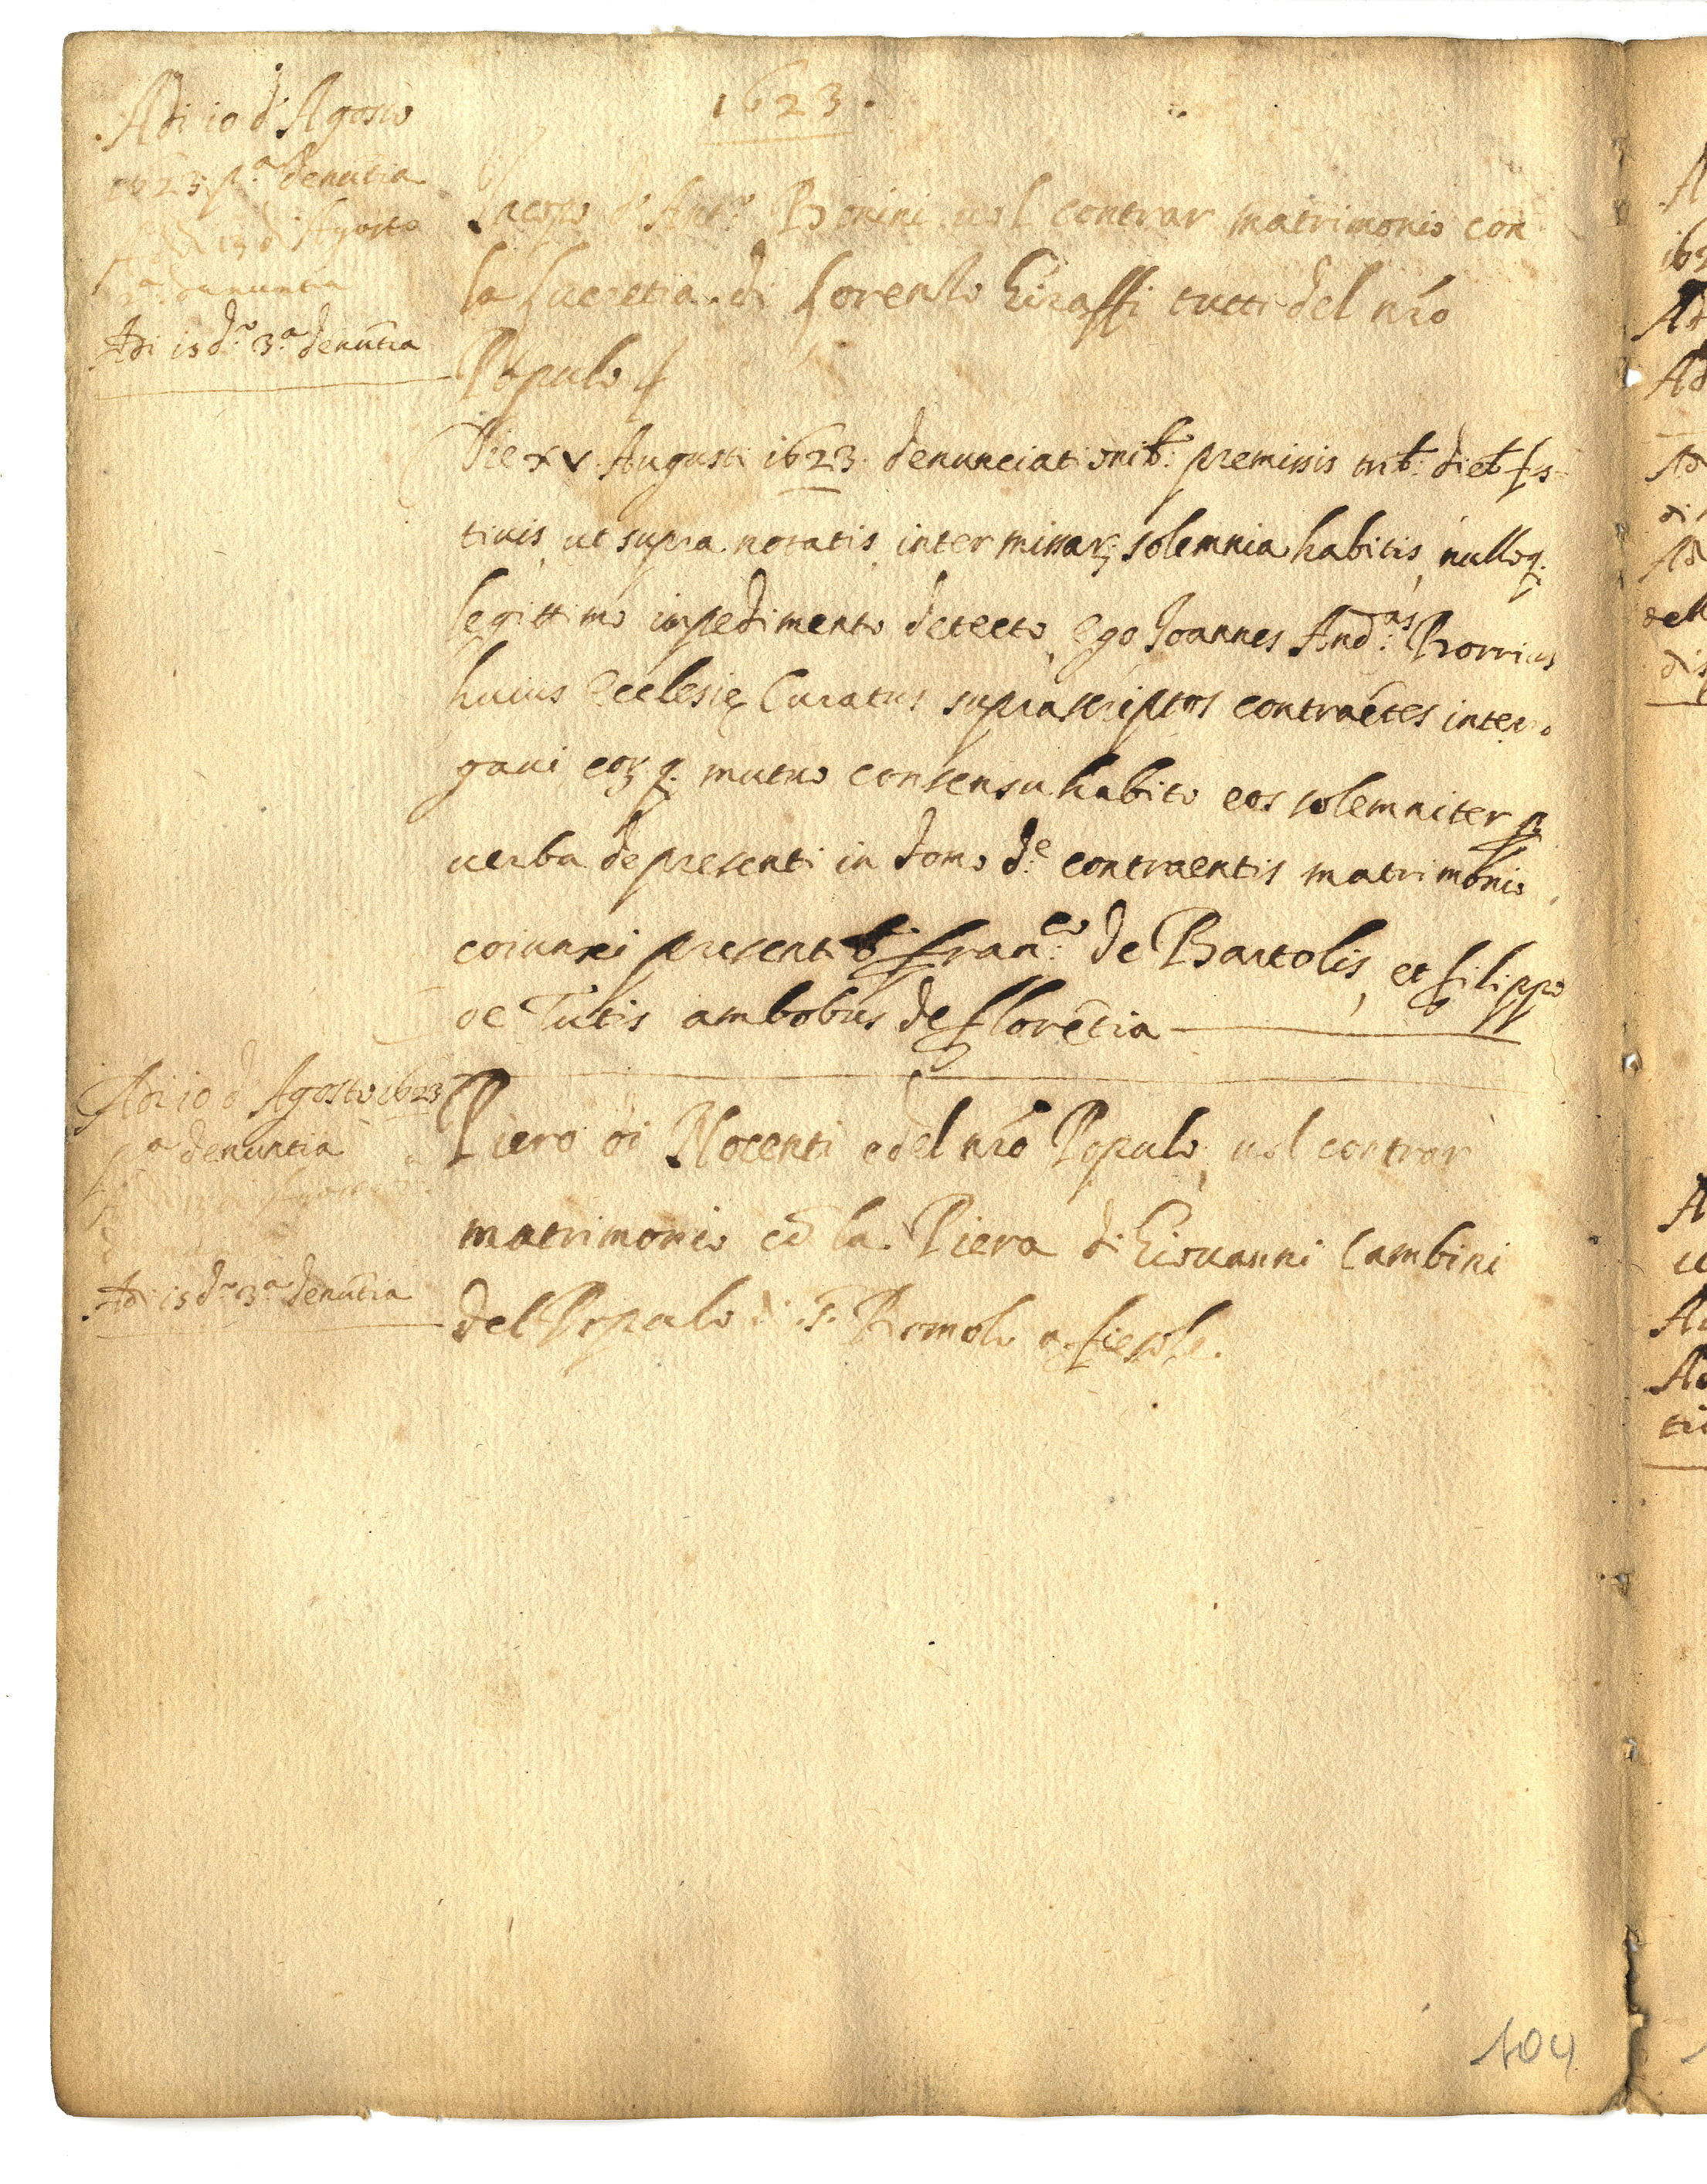 1623.
Adi 10 d' Agosto
1623 pa denūtia
Adi 13 d' Agosto
2a denuntia
Adi 15 do 3a denūtia
Jacopo di Anto Bonini uol contrar matrimonio con
la Lucretia di Lorenzo Giraffi tutti del nro
Populo
Die xv Augusti 1623 denunciationib: premissis trib: dieb fes
tiuis ut supra notatis inter missarum solemnia habitis, nulloq.
legittimo inpedimento detecto, ego Joannes Andas:
huius Ecclesię Curatus suprascriptos contraētes interro
gaui eorumq. mutuo consensu habito eos solemniter p
uerba de presenti in domo de contraentis matrimonio
coiunxi presentib: Franco: de Bartolis, et Filippo
de Tutis ambobus de Florētia
Adi 10 d Agosto 1623
pa denuntia
Adi 15 do 3a denūtia
Piero di Nocenti del nro Populo, uol contrar
matrimonio cō la Piera di Giouanni Cambini
del Populo di S. Romolo a Fiesole.
104